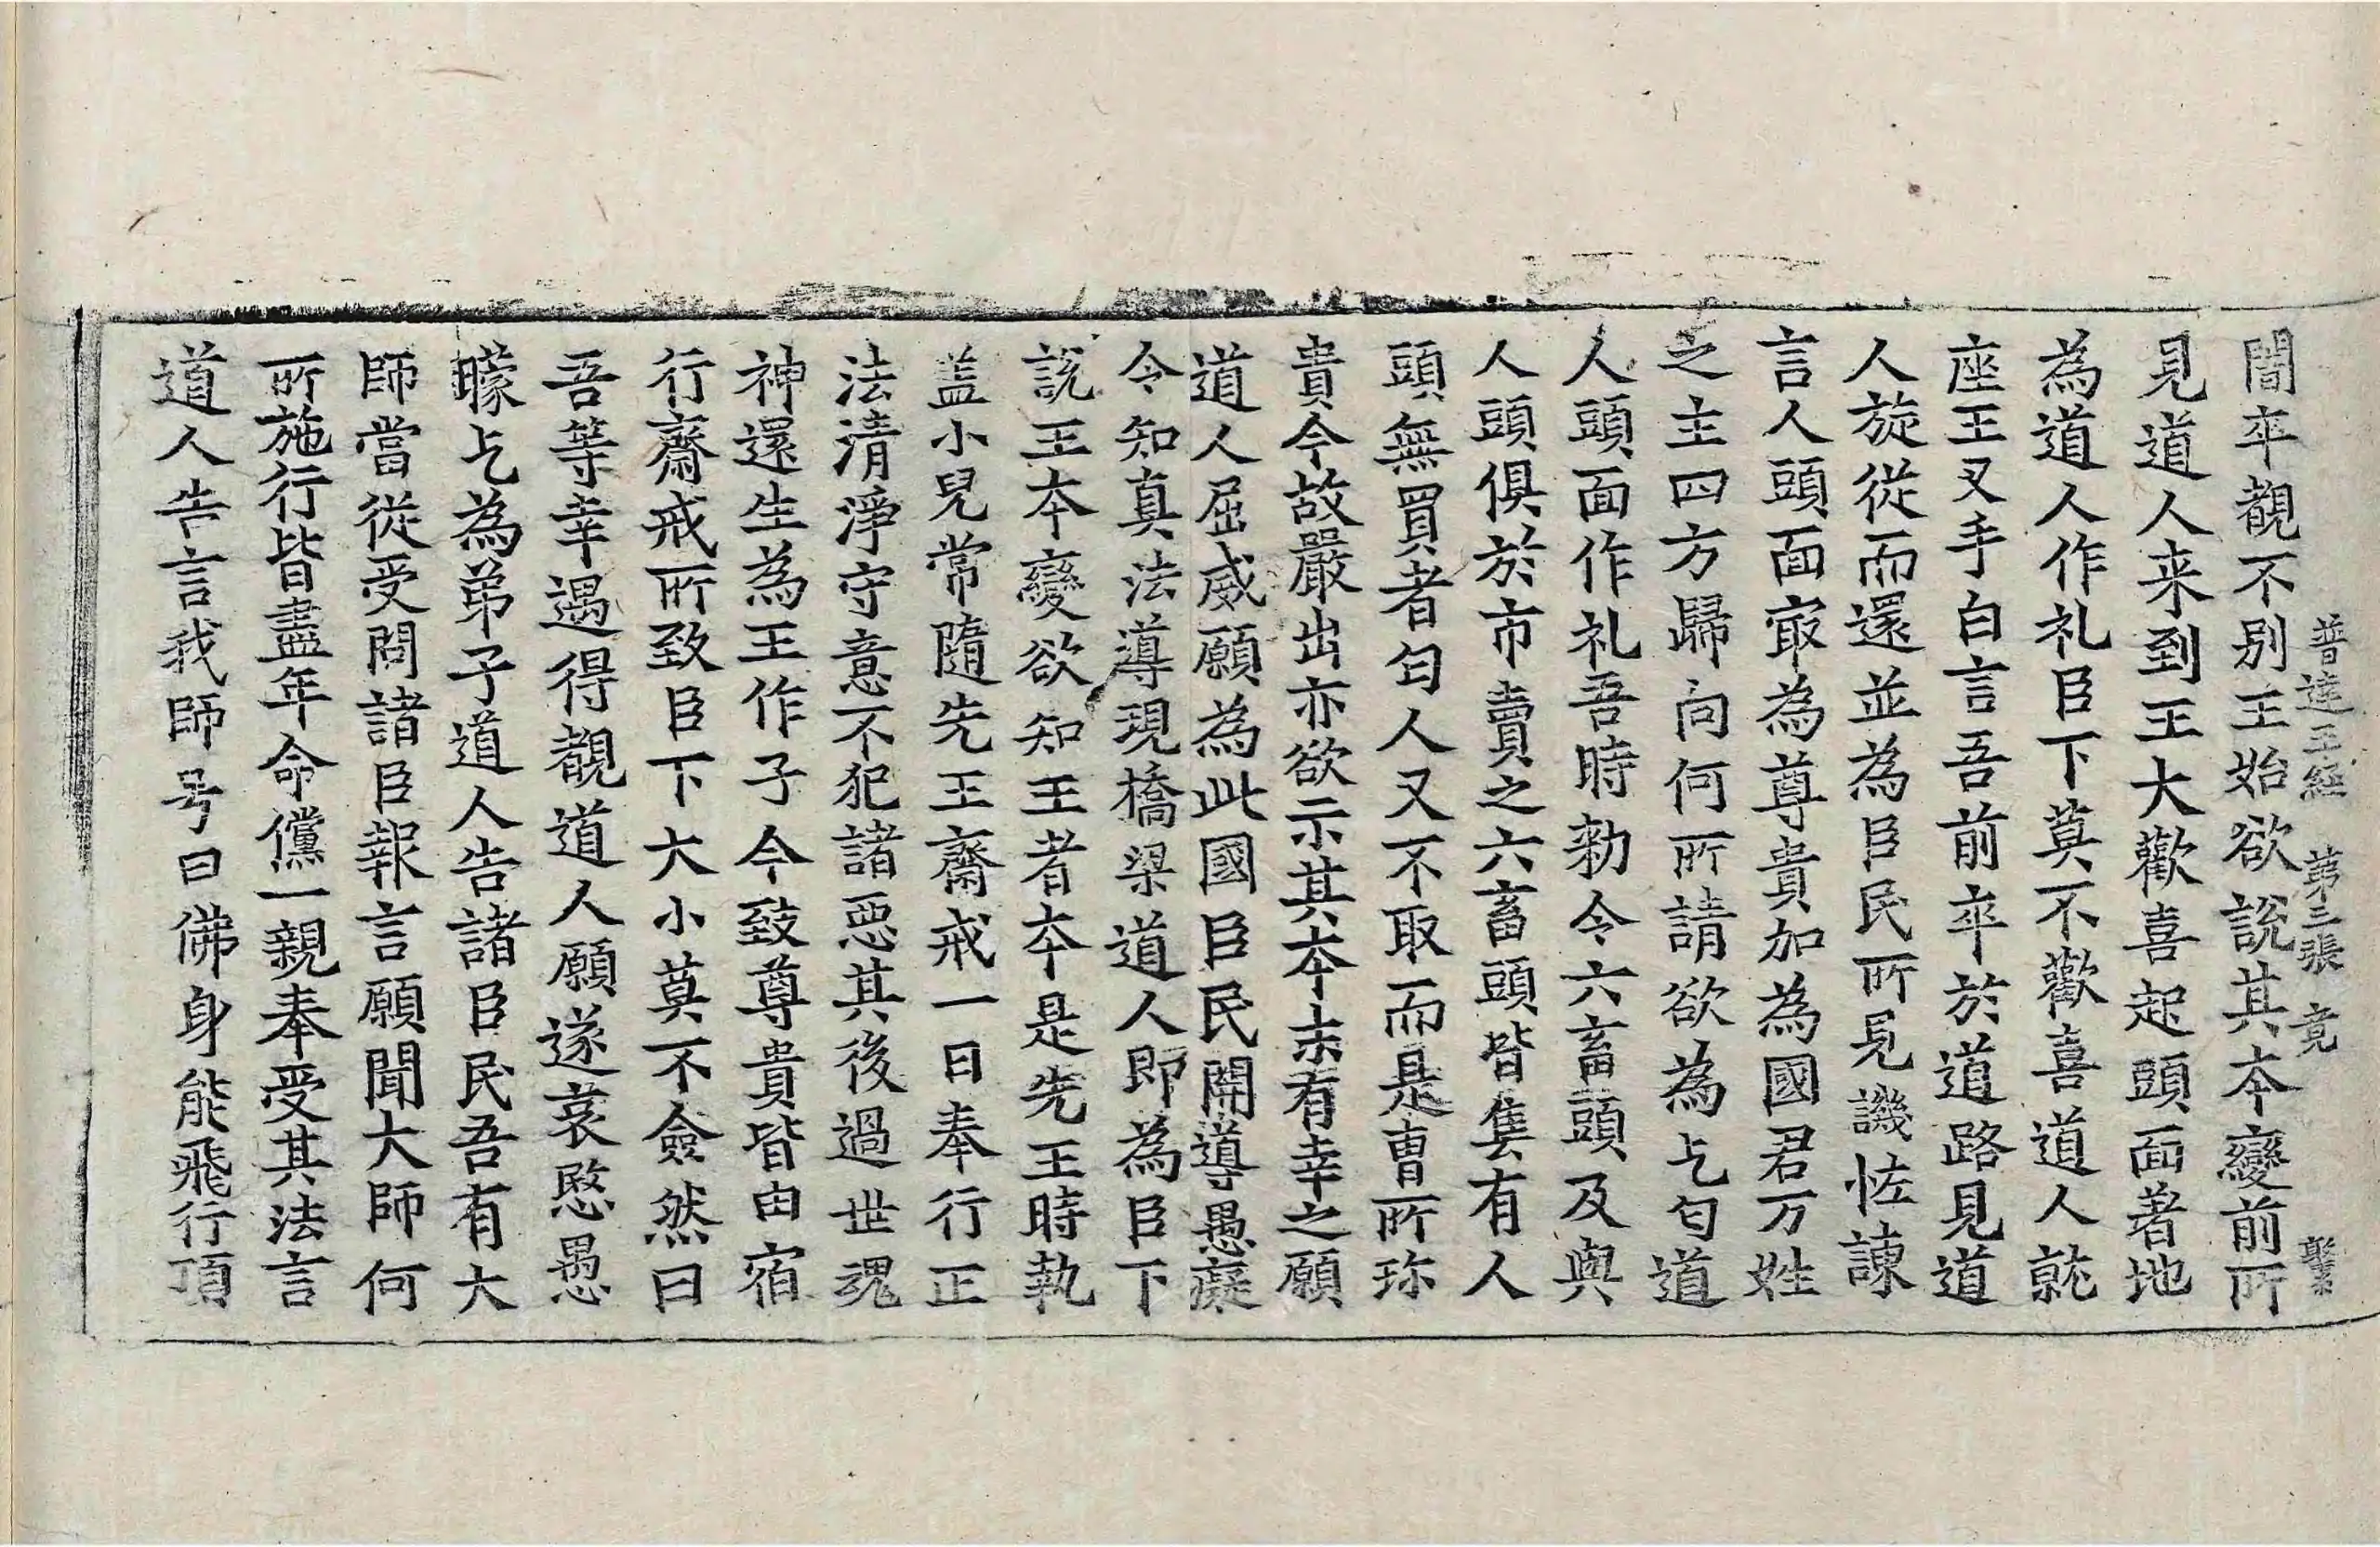 普達王經 第三張 竟
閒卒覩不別王始欲說其本變前所
見道人来到王大歡喜起頭面著地
為道人作礼臣下莫不歡喜道人就
座王叉手白言吾前卒於道路見道
人旋從而還並為臣民所見譏恠諫
言人頭面㝡為尊貴加為國君万姓
之主四方歸向何所請欲為乞匂道
人頭面作礼吾時勑令六畜頭及與
人頭俱於市賣之六畜頭皆售有人
頭無買者匂人又不取而是曹所珎
貴今故嚴出亦欲示其本末有幸之願
道人屈威願為此國臣民開導愚癡
令知真法導現橋梁道人即為臣下
說王本變欲知王者本是先王時執
盖小兒常隨先王齋戒一日奉行正
法清淨守意不犯諸惡其後過世魂
神還生為王作子今致尊貴皆由宿
行齋戒所致臣下大小莫不僉然曰
吾等幸遇得覩道人願遂哀愍愚
矇乞為弟子道人告諸臣民吾有大
師當從受問諸臣報言願聞大師何
所施行皆盡年命儻一親奉受其法言
道人告言我師号曰佛身能飛行項